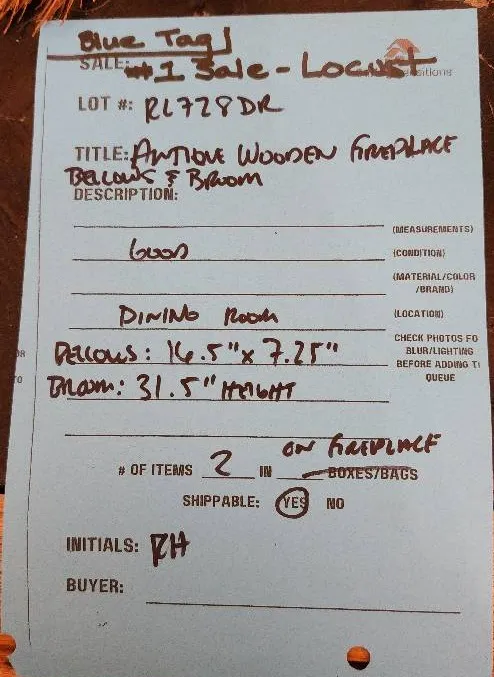 Blue Tag!
SALE: #1 Sale - Locust
LOT #: RL728DR
TITLE: ANTIQUE WOODEN FIREPLACE
BELLOWS & BROOM
DESCRIPTION:
(MEASUREMENTS)
GOOD (CONDITION)
(MATERIAL/COLOR
/BRAND)
DINING ROOM (LOCATION)
BELLOWS: 16.5" x 7.25" CHECK PHOTOS FO
BLUR/LIGHTING
BEFORE ADDING T
QUEUE
BROOM: 31.5" HEIGHT
ON FIREPLACE
# OF ITEMS 2 IN BOXES/BAGS
SHIPPABLE: YES NO
INITIALS: RH
BUYER: